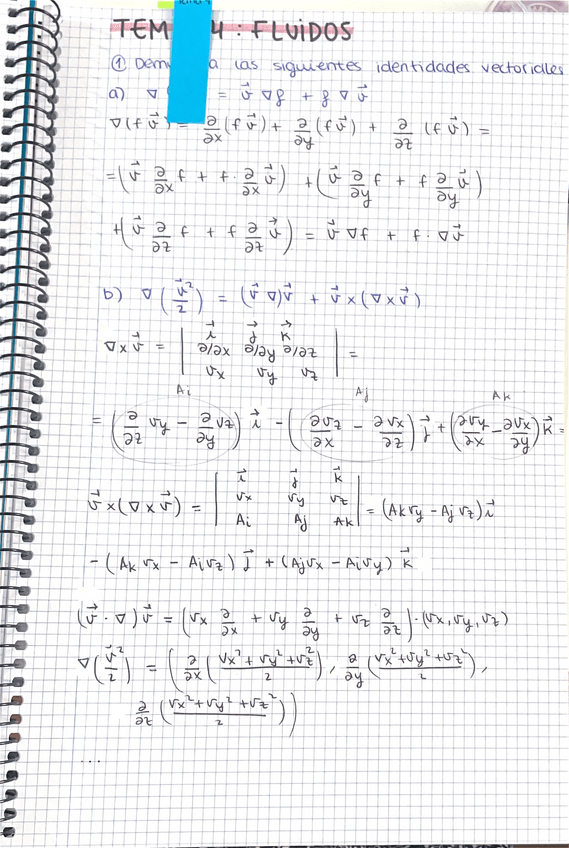 TEM 4: FLUIDOS
① Dem a las siguientes identidades vectoriales
a) ∇( = v⃗ ∇f + f ∇ v⃗
∇(f v⃗) = ∂/∂x (f v⃗) + ∂/∂y (f v⃗) + ∂/∂z (f v⃗) =
= (v⃗ ∂/∂x f + f · ∂/∂x v⃗) + (v⃗ ∂/∂y f + f ∂/∂y v⃗)
+ (v⃗ ∂/∂z f + f ∂/∂z v⃗) = v⃗ ∇f + f · ∇v⃗
b) ∇ (v⃗²/2) = (v⃗ ∇)v⃗ + v⃗ × (∇ × v⃗)
i⃗ j⃗ k⃗
∇ × v⃗ = | ∂/∂x ∂/∂y ∂/∂z | =
vx vy vz
Ai Aj Ak
= (∂/∂z vy − ∂/∂y vz) i⃗ − (∂vz/∂x − ∂vx/∂z) j⃗ + (∂vy/∂x − ∂vx/∂y) k⃗ =
i⃗ j⃗ k⃗
v⃗ × (∇ × v⃗) = | vx vy vz | = (Ak vy − Aj vz) i⃗
Ai Aj Ak
− (Ak vx − Ai vz) j⃗ + (Aj vx − Ai vy) k⃗
(v⃗ · ∇) v⃗ = (vx ∂/∂x + vy ∂/∂y + vz ∂/∂z) · (vx, vy, vz)
∇(v⃗²/2) = (∂/∂x ((vx² + vy² + vz²)/2), ∂/∂y ((vx² + vy² + vz²)/2),
∂/∂z ((vx² + vy² + vz²)/2))
...